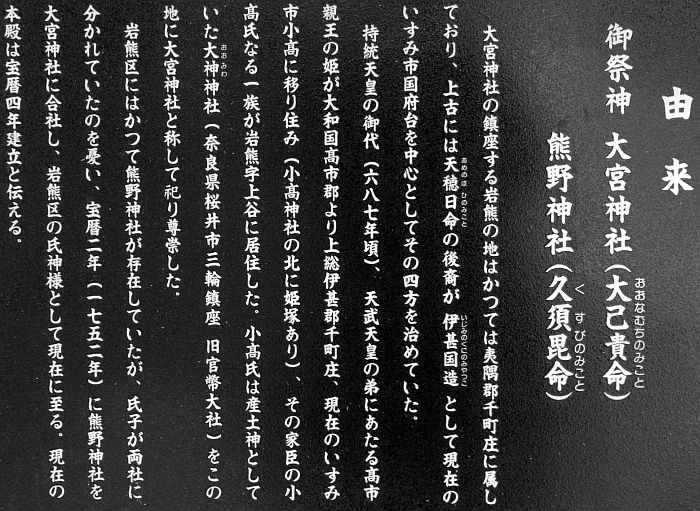 由来
御祭神 大宮神社（大己貴命）
おおなむちのみこと
熊野神社（久須毘命）
くすびのみこと
大宮神社の鎮座する岩熊の地はかつては夷隅郡千町庄に属し
ており、上古には天穂日命の後裔が 伊甚国造 として現在の
あめのほひのみこと
いじみのくにのみやつこ
いすみ市国府台を中心としてその四方を治めていた。
持統天皇の御代（六八七年頃）、天武天皇の弟にあたる高市
親王の姫が大和国高市郡より上総伊甚郡千町庄、現在のいすみ
市小高に移り住み（小高神社の北に姫塚あり）、その家臣の小
高氏なる一族が岩熊字上谷に居住した。小高氏は産土神として
いた大神神社（奈良県桜井市三輪鎮座 旧官幣大社）をこの
おおみわ
地に大宮神社と称して祀り尊崇した。
岩熊区にはかつて熊野神社が存在していたが、氏子が両社に
分かれていたのを憂い、宝暦二年（一七五二年）に熊野神社を
大宮神社に合社し、岩熊区の氏神様として現在に至る。現在の
本殿は宝暦四年建立と伝える。